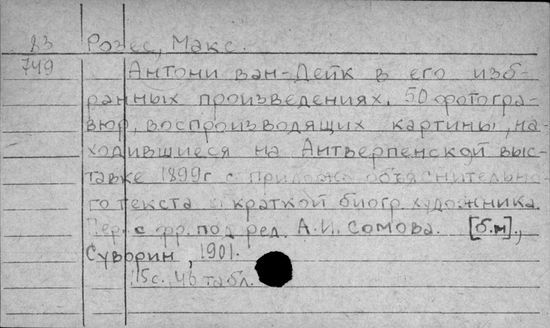 83 Розес, Макс.
749 Антони ван-Дейк в его изб-
ранных произведениях. 50 фотогра-
вюр, воспроизводящих картины, на-
ходившиеся на Антверпенской выс-
тавке 1899г с приложен объяснительно-
го текста и краткой биогр. художника.
Пер. с фр. под ред. А.И. Сомова. [б.м],
Суворин, 1901.
15с., 46 табл.